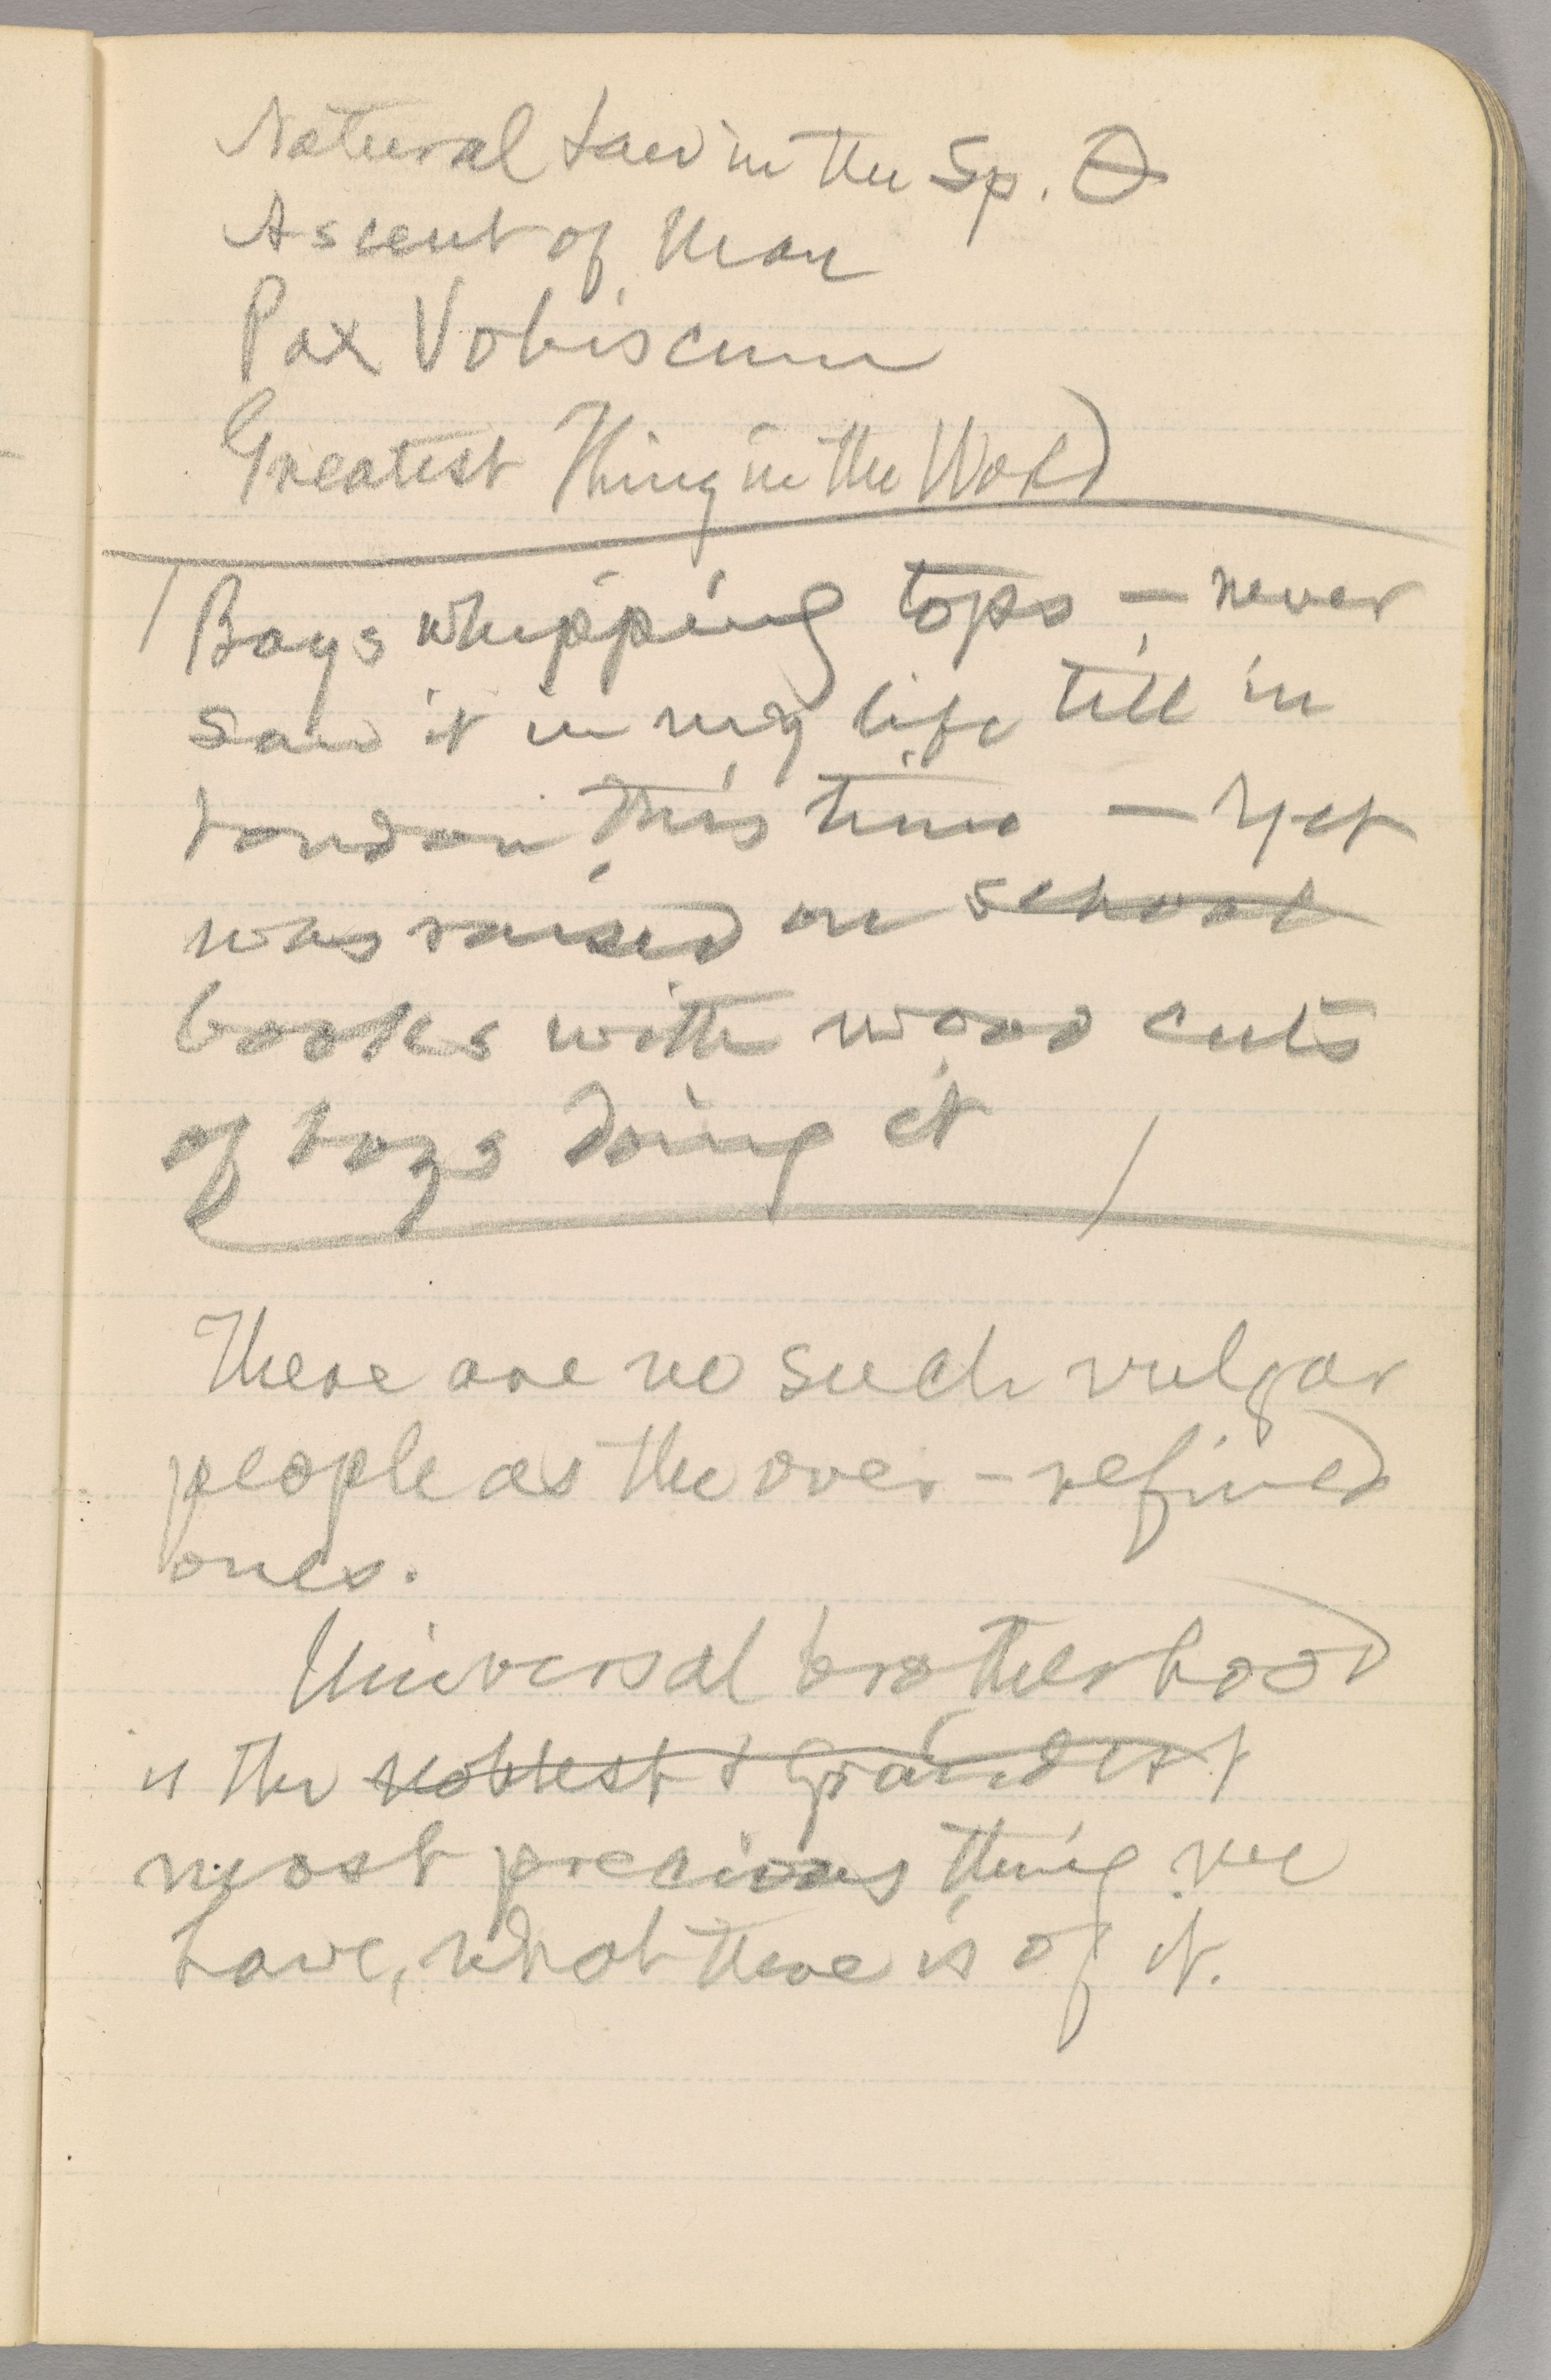 Natural Law in the Sp. ⊖
Ascent of Man
Pax Vobiscum
Greatest Thing in the World
Boys whipping tops — never
saw it in my life till in
London this time — Yet
was raised on school
books with wood cuts
of boys doing it
There are no such vulgar
people as the over-refined
ones.
Universal brotherhood
is the noblest & grandest
most precious thing we
have, what there is of it.